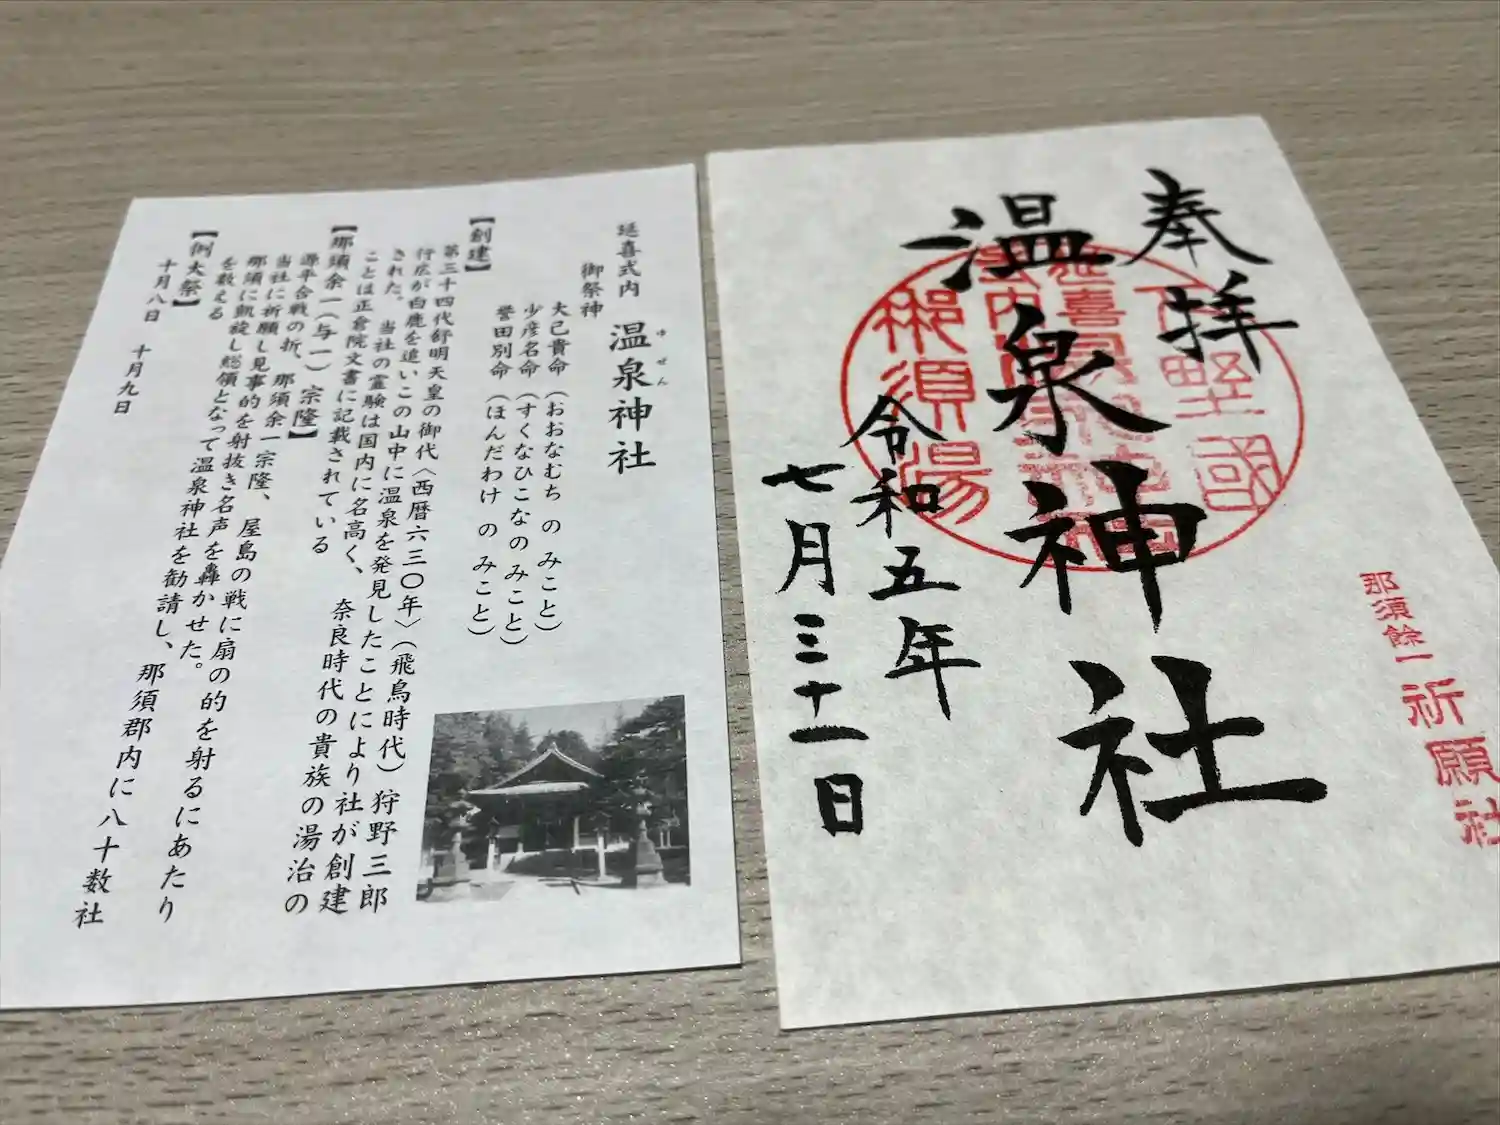 延喜式内 温泉神社
ゆぜん
御祭神
大己貴命(おおなむち の みこと)
少彦名命(すくなひこなのみこと)
誉田別命(ほんだわけ の みこと)
【創建】
第三十四代舒明天皇の御代〈西暦六三〇年〉(飛鳥時代)狩野三郎
行広が白鹿を追いこの山中に温泉を発見したことにより社が創建
された。 当社の霊験は国内に名高く、 奈良時代の貴族の湯治の
ことは正倉院文書に記載されている
【那須余一(与一)宗隆】
源平合戦の折、 那須余一宗隆、 屋島の戦に扇の的を射るにあたり
当社に祈願し見事的を射抜き名声を轟かせた。
那須に凱旋し総領となって温泉神社を勧請し、那須郡内に八十数社
を数える
【例大祭】
十月八日 十月九日
奉拝
温泉神社
令和五年
七月三十一日
下野國
延喜式
那須湯
那須餘一
祈願社